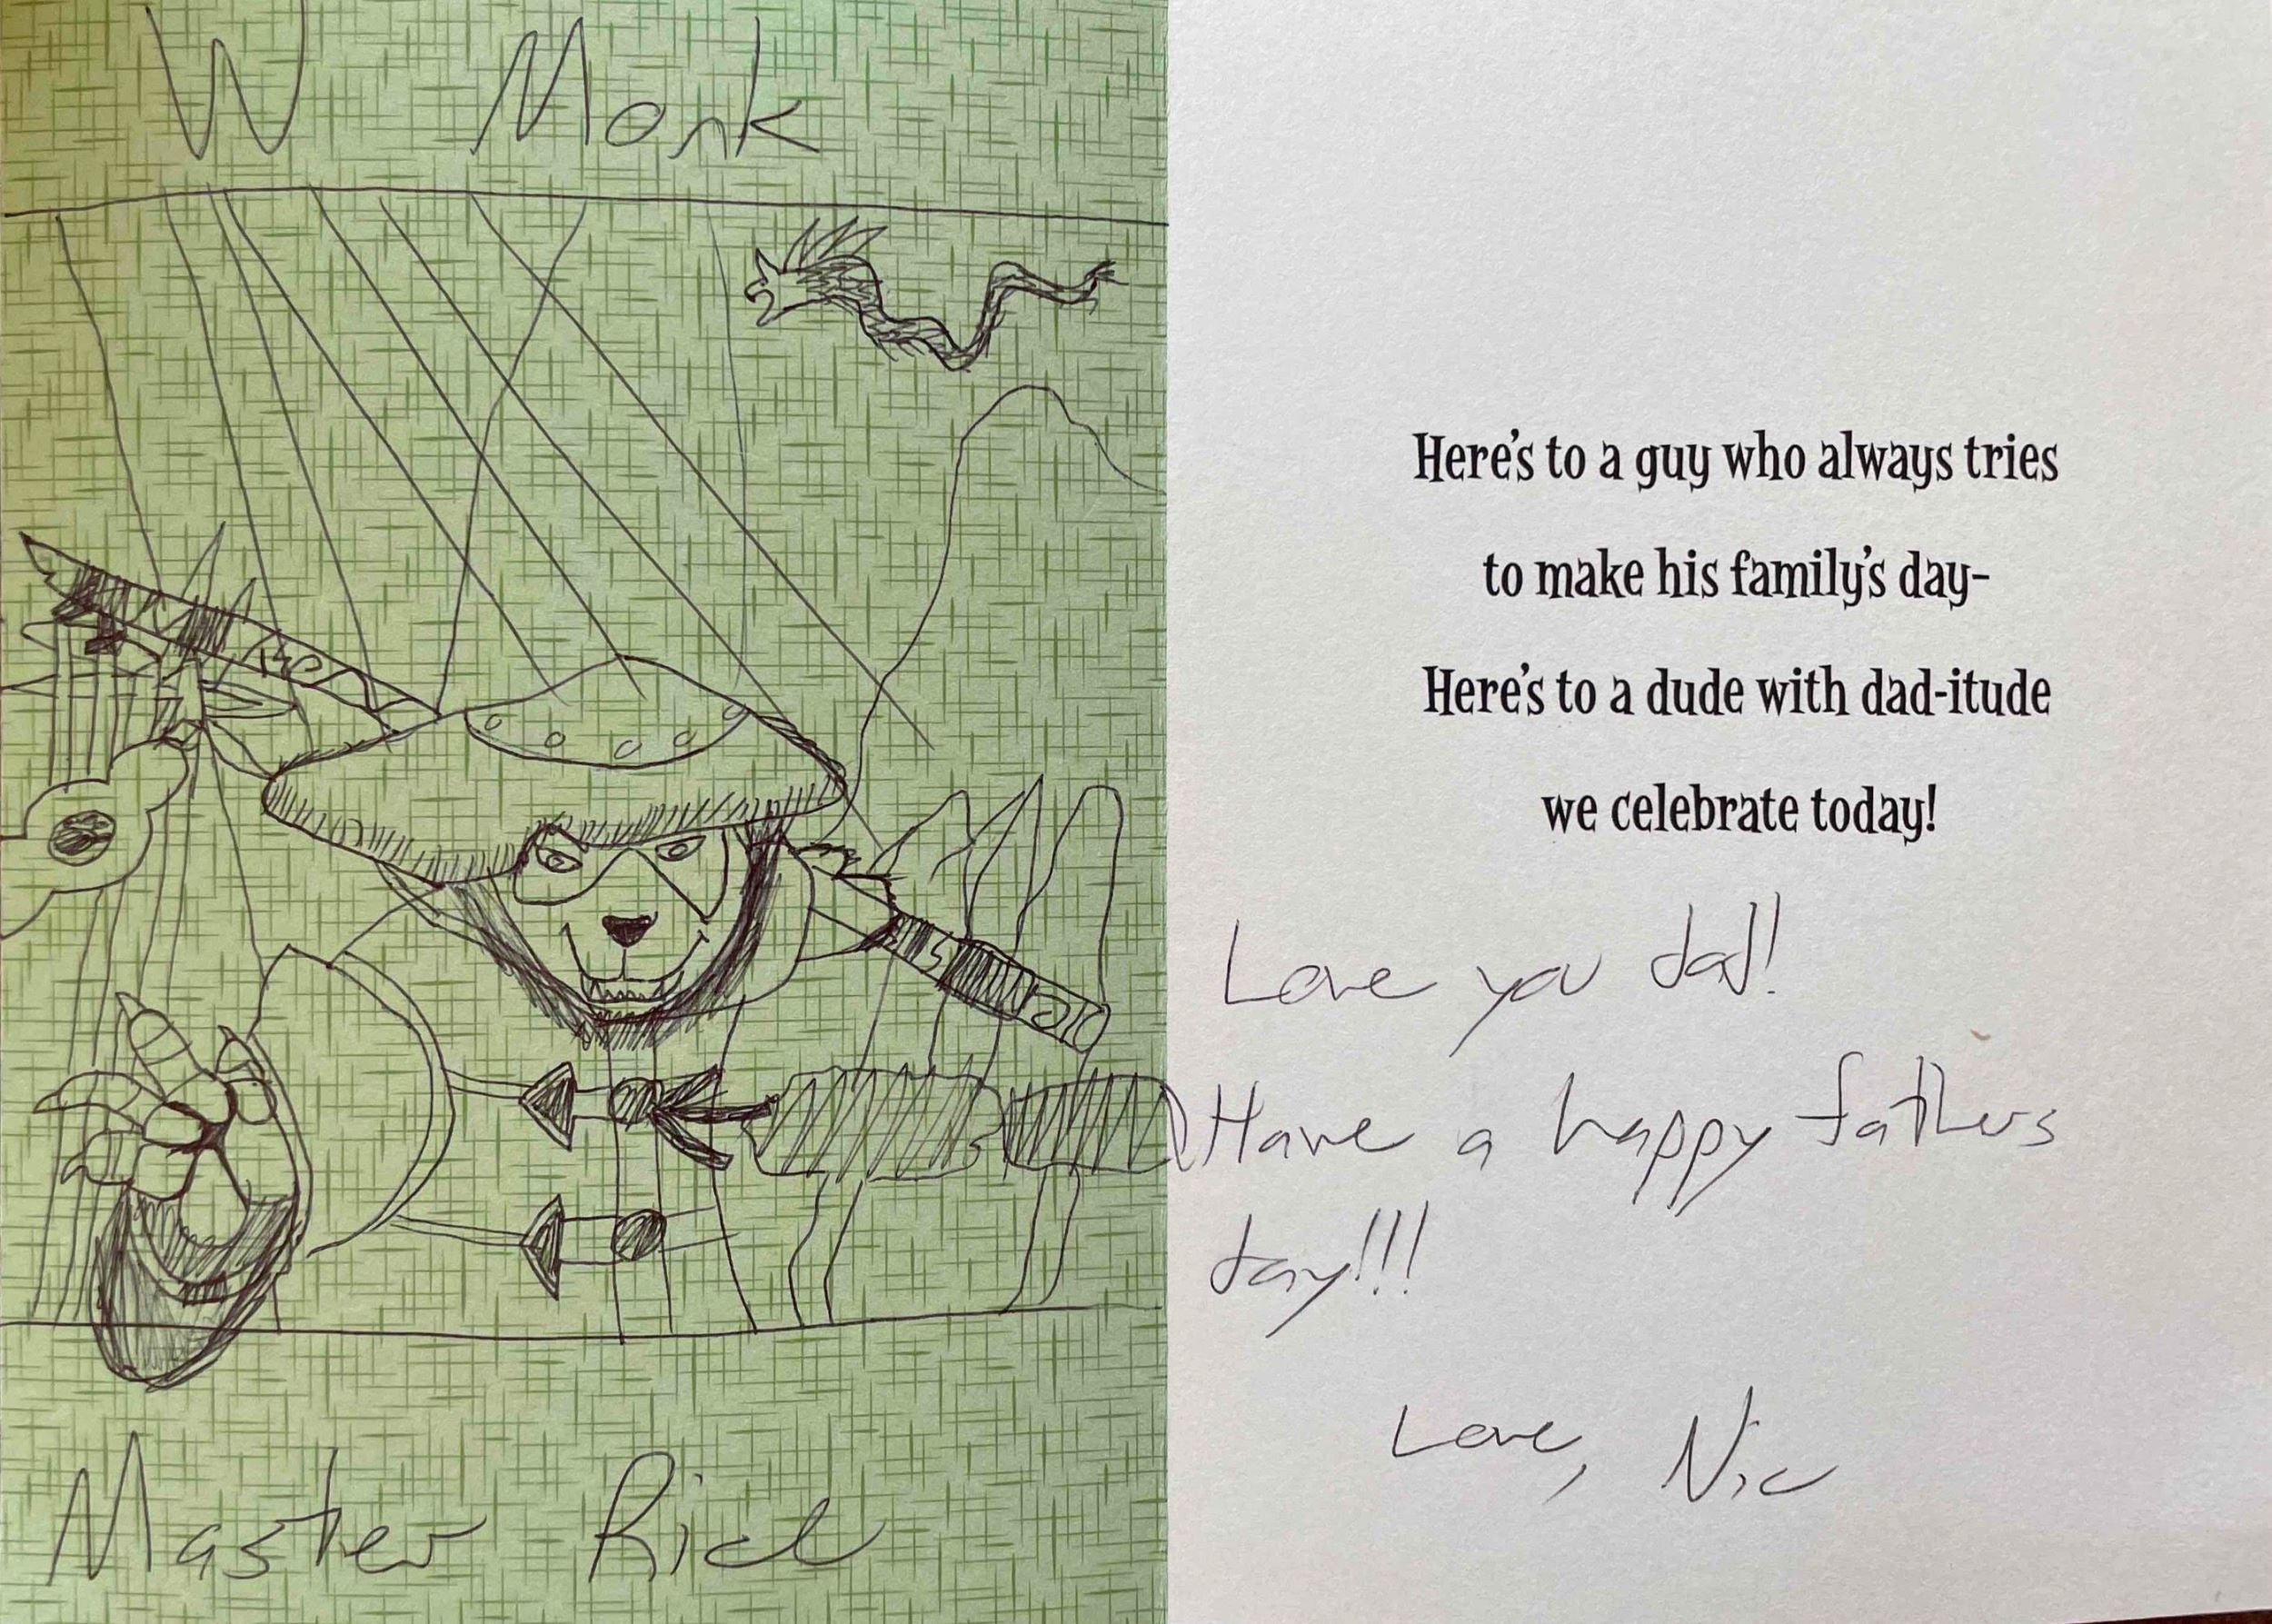 W Monk
Master Rice
Here's to a guy who always tries
to make his family's day-
Here's to a dude with dad-itude
we celebrate today!
Love you dad!
Have a happy fathers
day!!!
Love, Nic